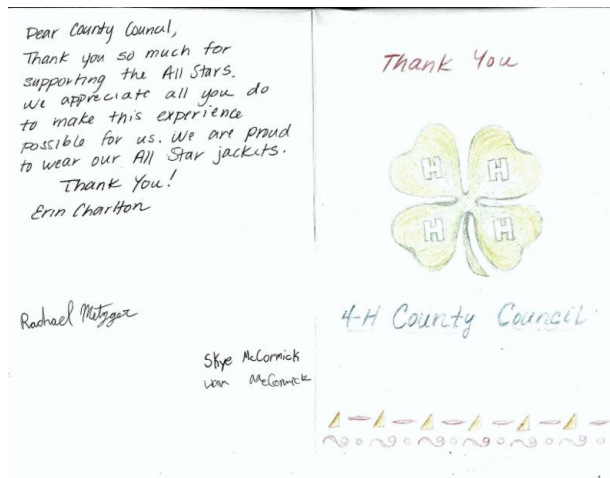 Dear County Council,
Thank you so much for
supporting the All Stars.
We appreciate all you do
to make this experience
possible for us. We are proud
to wear our All Star jackets.
Thank You!
Erin Charlton
Rachael Metzger
Skye McCormick
McCormick
Thank You
H H
H H
4-H County Council